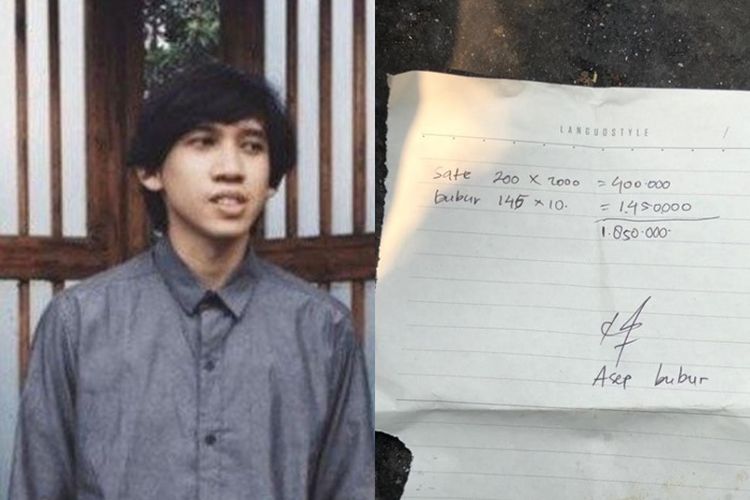 LANGUOSTYLE /
sate 200 x 2000 = 400.000
bubur 145 x 10. = 1.450.000
1.850.000.
Asep bubur